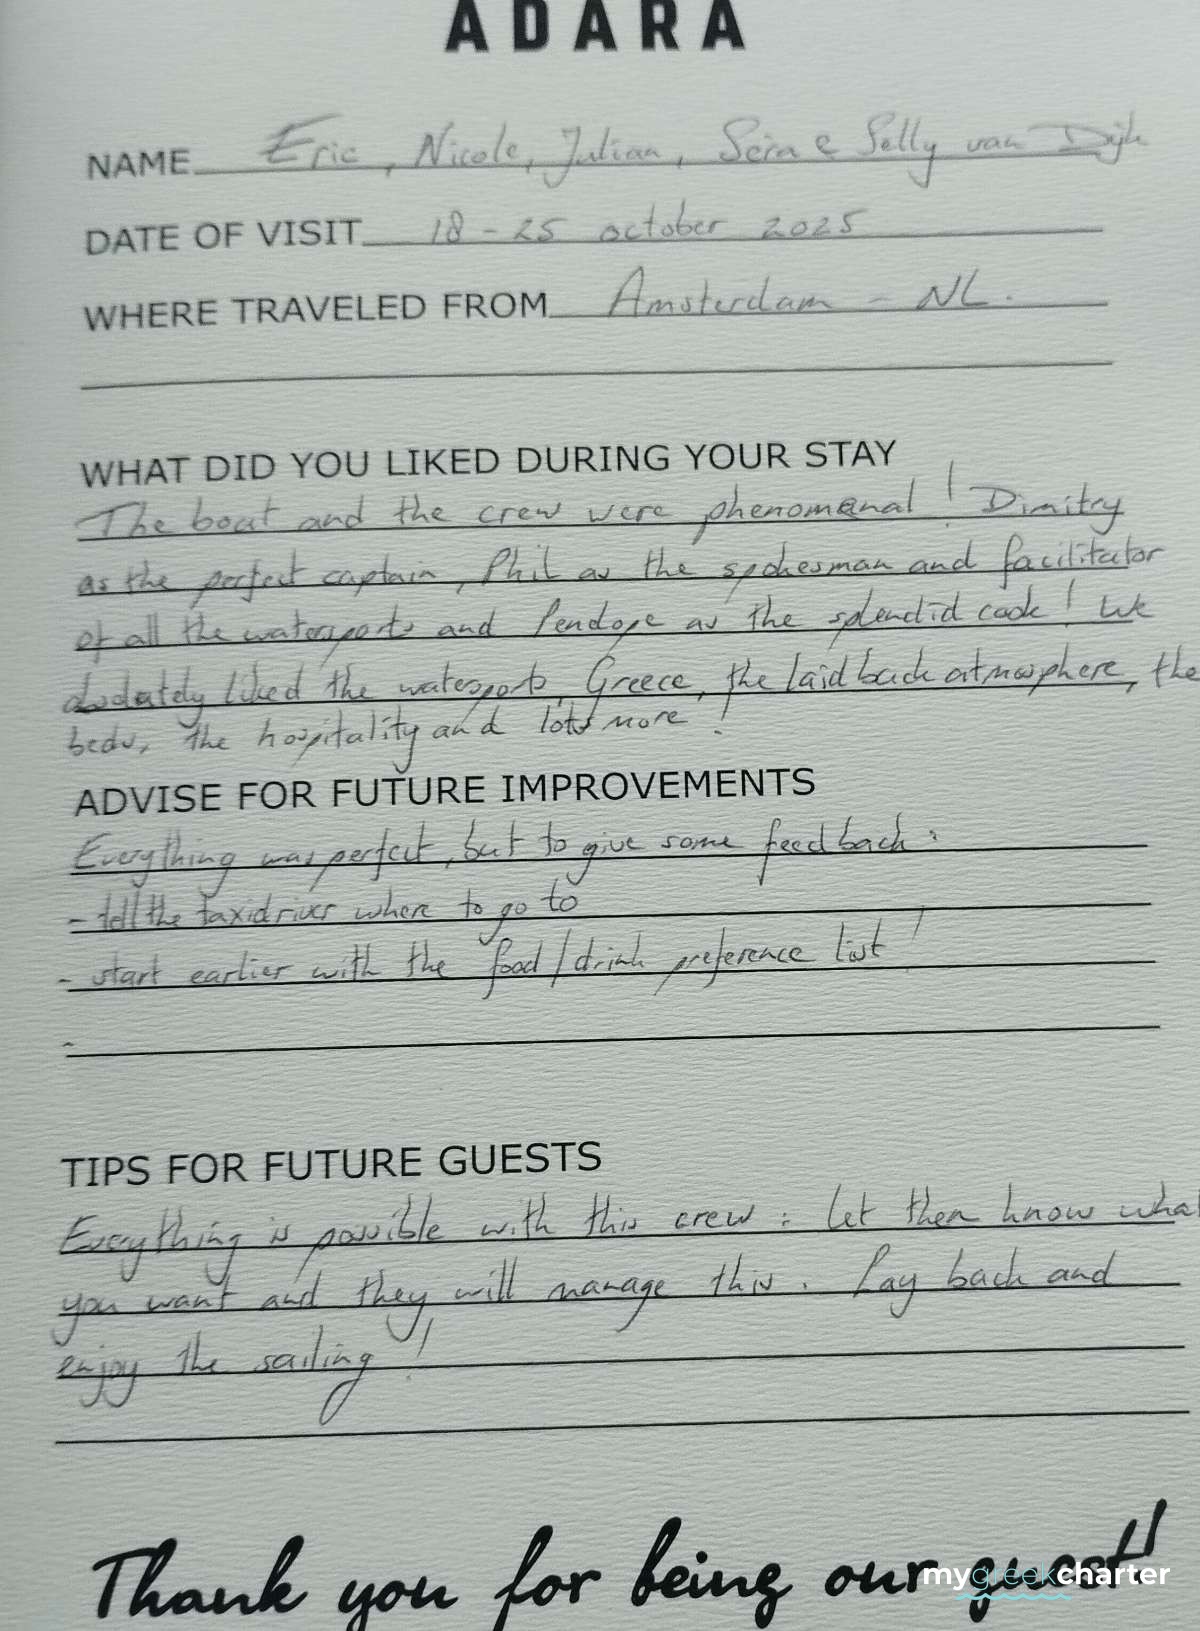 ADARA
NAME Eric, Nicole, Julian, & Selly van Dijk
DATE OF VISIT 18 - 25 october 2025
WHERE TRAVELED FROM Amsterdam - NL.
WHAT DID YOU LIKED DURING YOUR STAY
The boat and the crew were phenomenal! Dimitry
as the perfect captain, Phil as the spokesman and facilitator
of all the watersports and Penelope as the splendid cook! We
absolutely liked the watersports, Greece, the laid back atmosphere, the
beds, the hospitality and lots more!
ADVISE FOR FUTURE IMPROVEMENTS
Everything was perfect, but to give some feedback:
- tell the taxidriver where to go to
- start earlier with the food/drink preference list!
-
TIPS FOR FUTURE GUESTS
Everything is possible with this crew: let them know what
you want and they will manage this. Lay back and
enjoy the sailing!
Thank you for being our guest!!
mygreekcharter